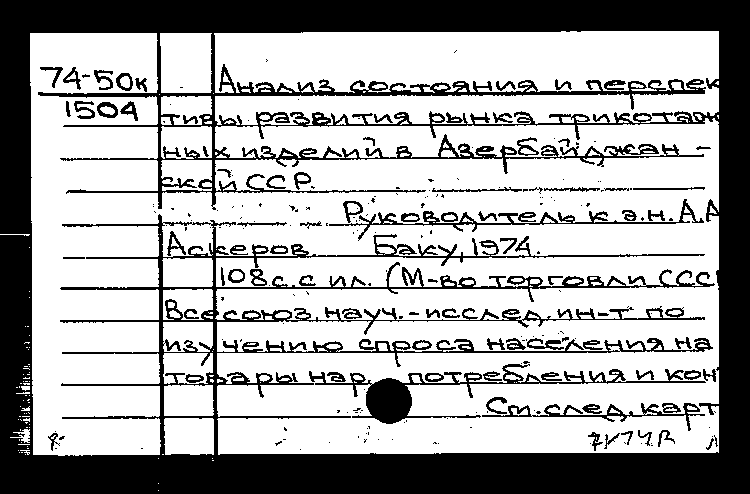 74-50к Анализ состояния и перспек
1504 тивы развития рынка трикотаж
ных изделий в Азербайджан -
ской ССР.
Руководитель к.э.н. А.А
Аскеров. Баку, 1974.
108с. с ил. (М-во торговли СССР
Всесоюз. науч.-исслед. ин-т по
изучению спроса населения на
товары нар. потребления и кон
См. след. карт